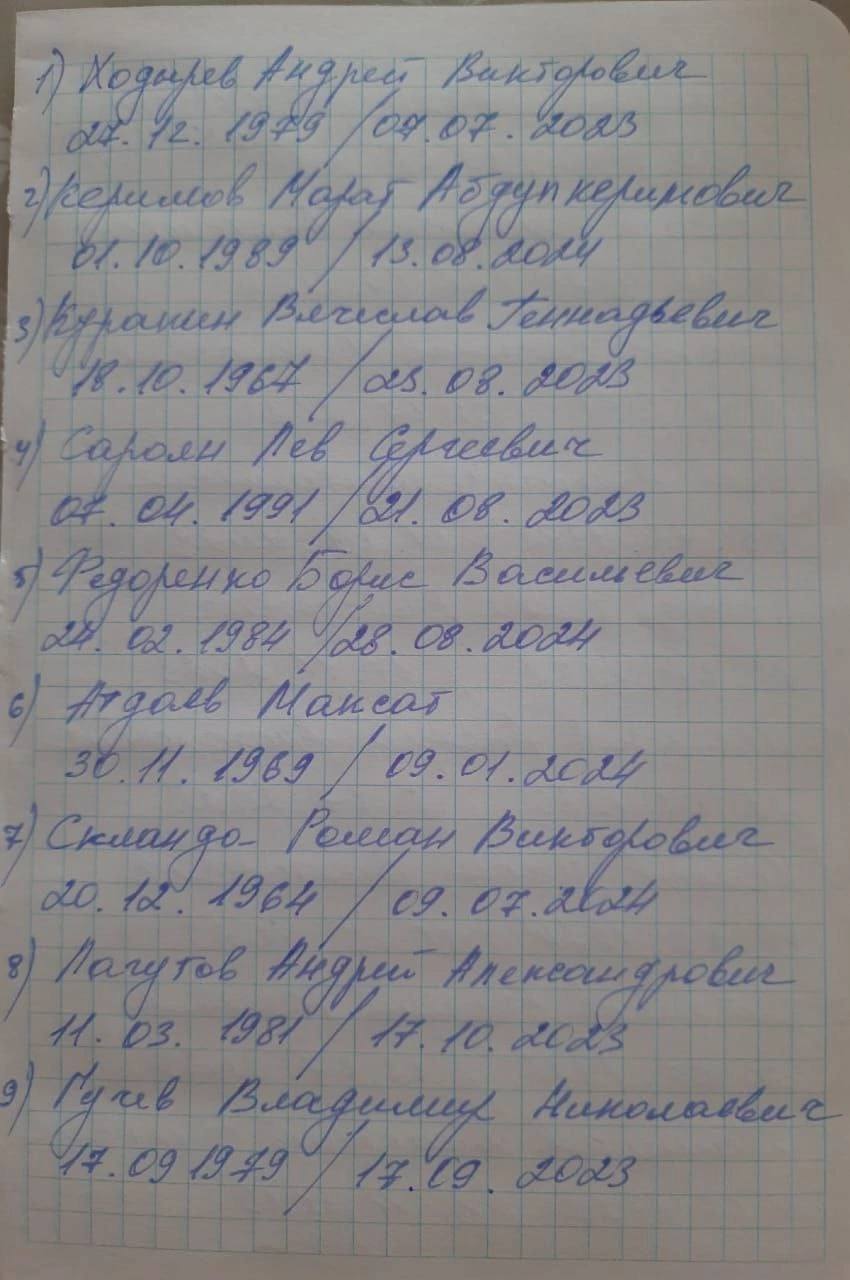 1) Ходырев Андрей Викторович
27.12.1979 / 07.07.2023
2) Керимов Марат Абдулкеримович
01.10.1989 / 13.08.2024
3) Куранин Вячеслав Геннадьевич
18.10.1967 / 23.08.2023
4) Сароян Лев Сергеевич
07.04.1991 / 21.08.2023
5) Федоренко Борис Васильевич
24.02.1984 / 28.08.2024
6) Атдаев Максат
30.11.1969 / 09.01.2024
7) Роман Викторович
20.12.1964 / 09.07.2024
8) Лагутов Андрей Александрович
11.03.1981 / 17.10.2023
9) Гучев Владимир Николаевич
17.09 1979 / 17.09.2023